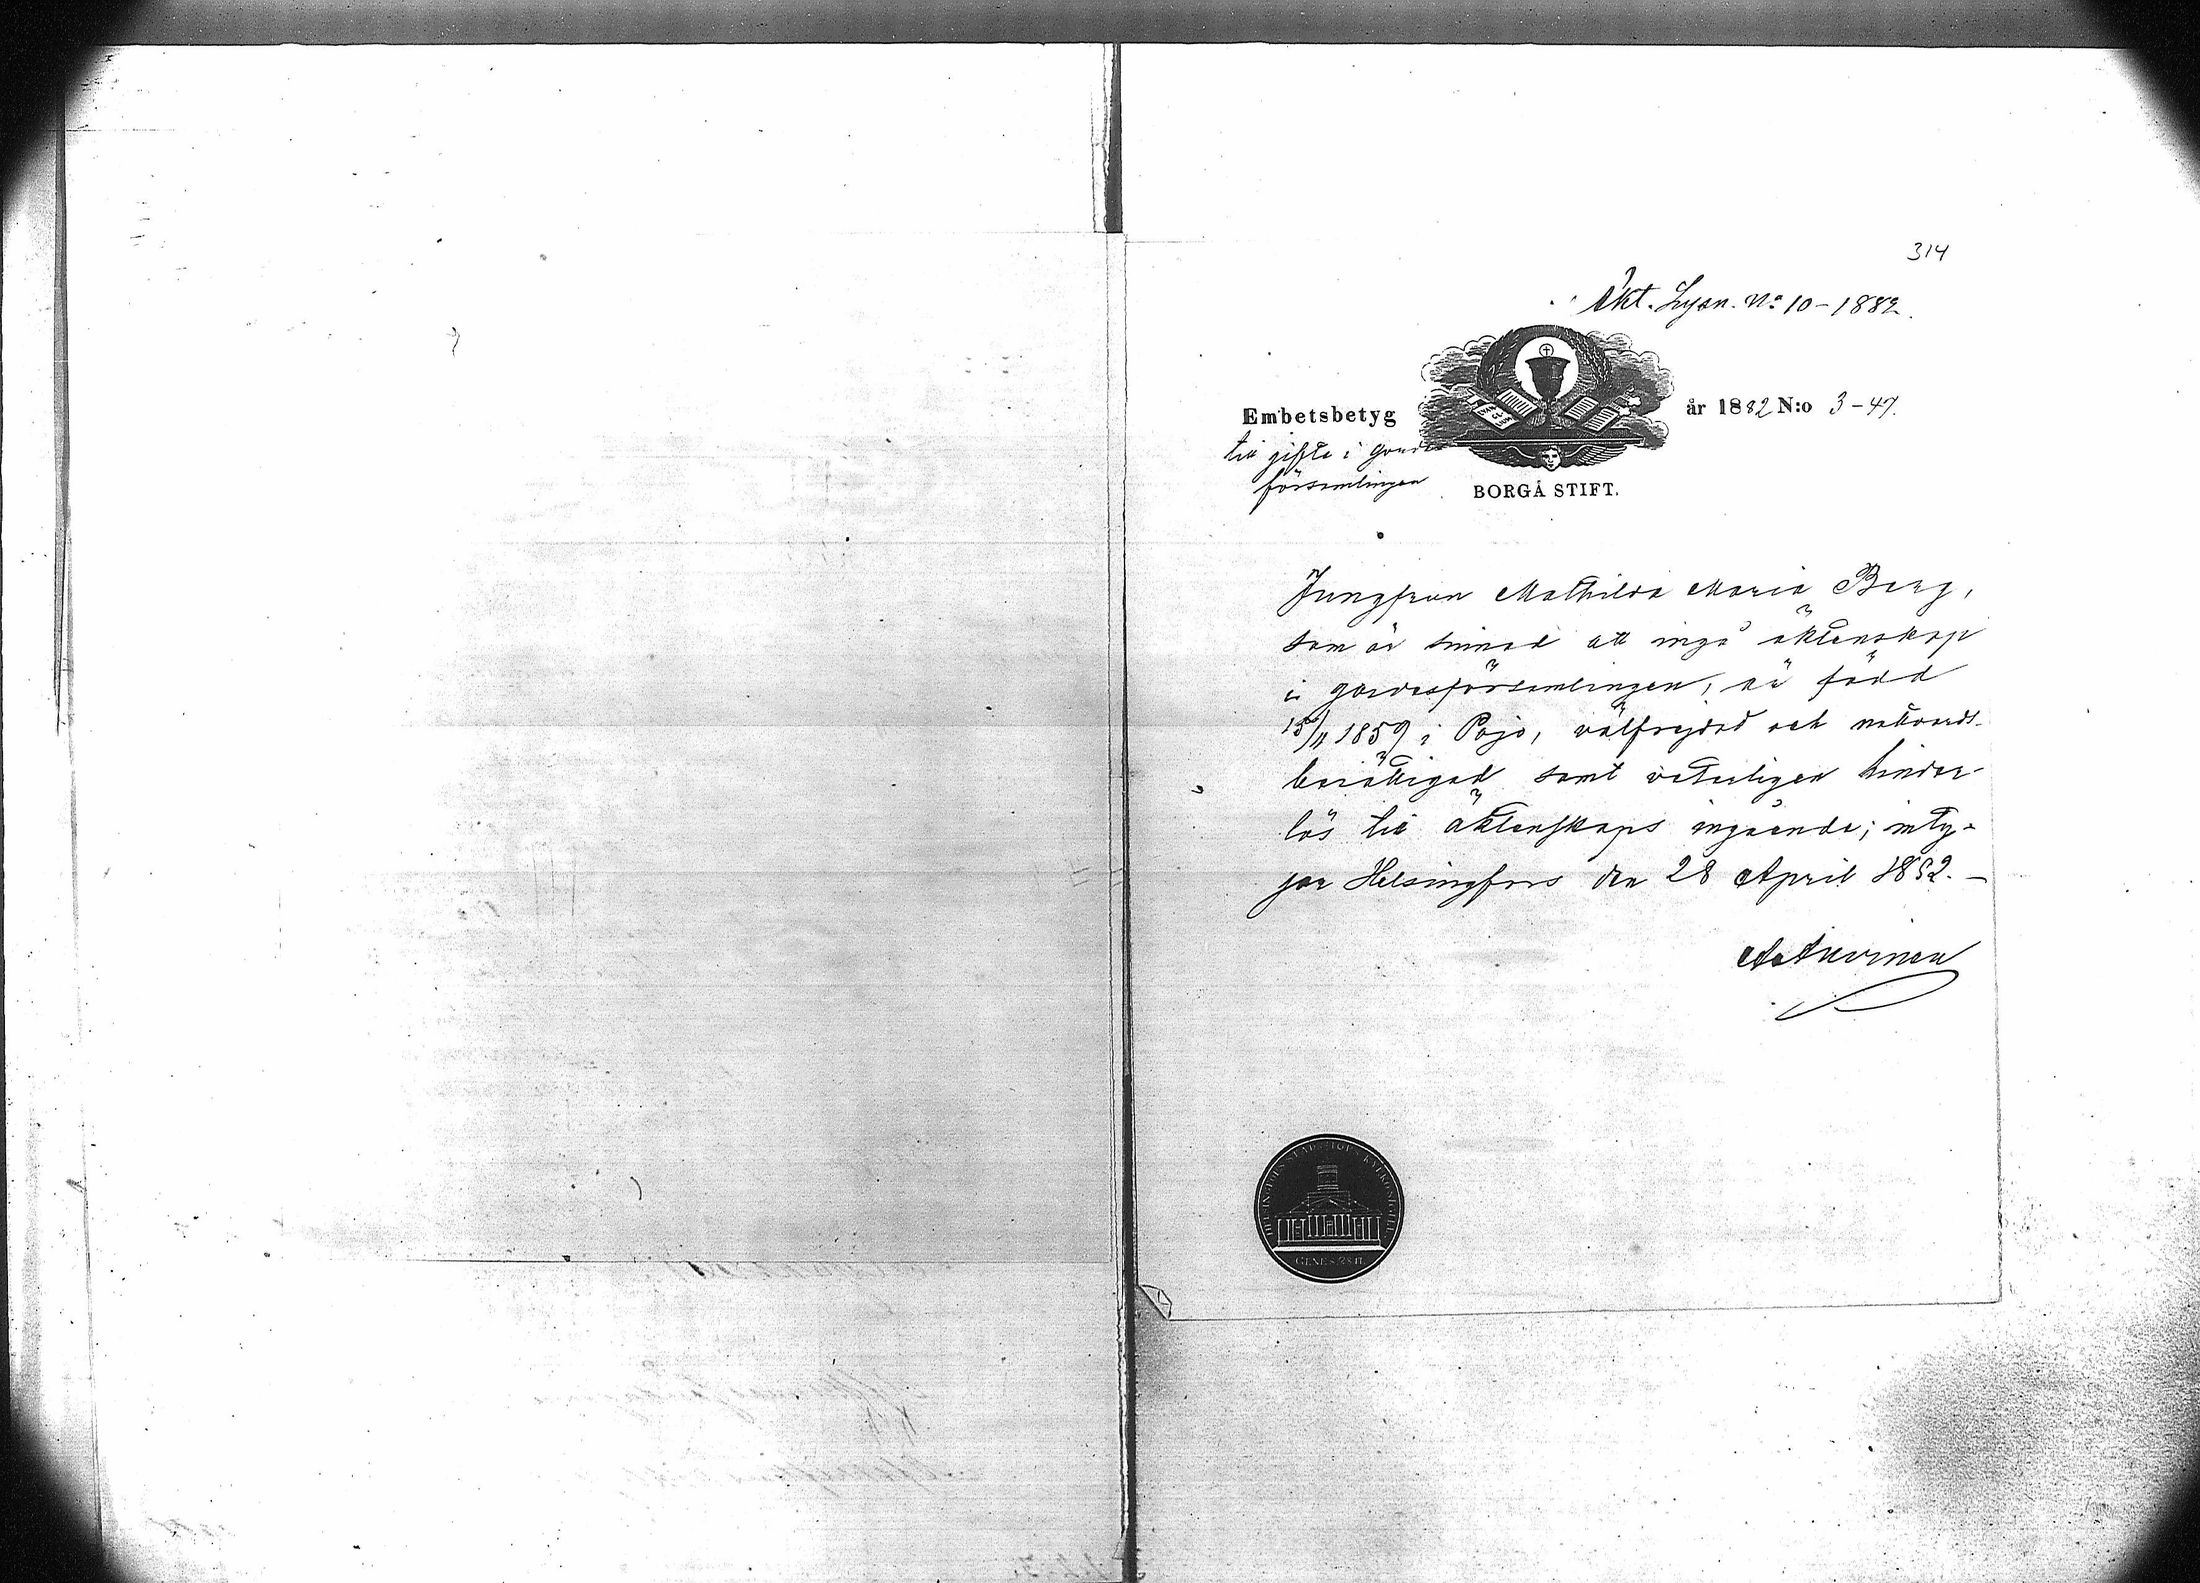 314
Äkt. Lysn. No 10-1882.
Embetsbetyg
år 1882 N:o 3-47.
till gifte i gardes
församlingen
BORGÅ STIFT.
Jungfrun Mathilda Maria Berg,
som är sinnad att ingå äktenskap
i gardesförsamlingen, är född
15/11 1859 i Pojo, välfrejdad och nattvards-
berättigad samt veterligen hinder-
lös till äktenskaps ingående; inty-
gar Helsingfors den 28 April 1882.-
GENES. 28. 17.